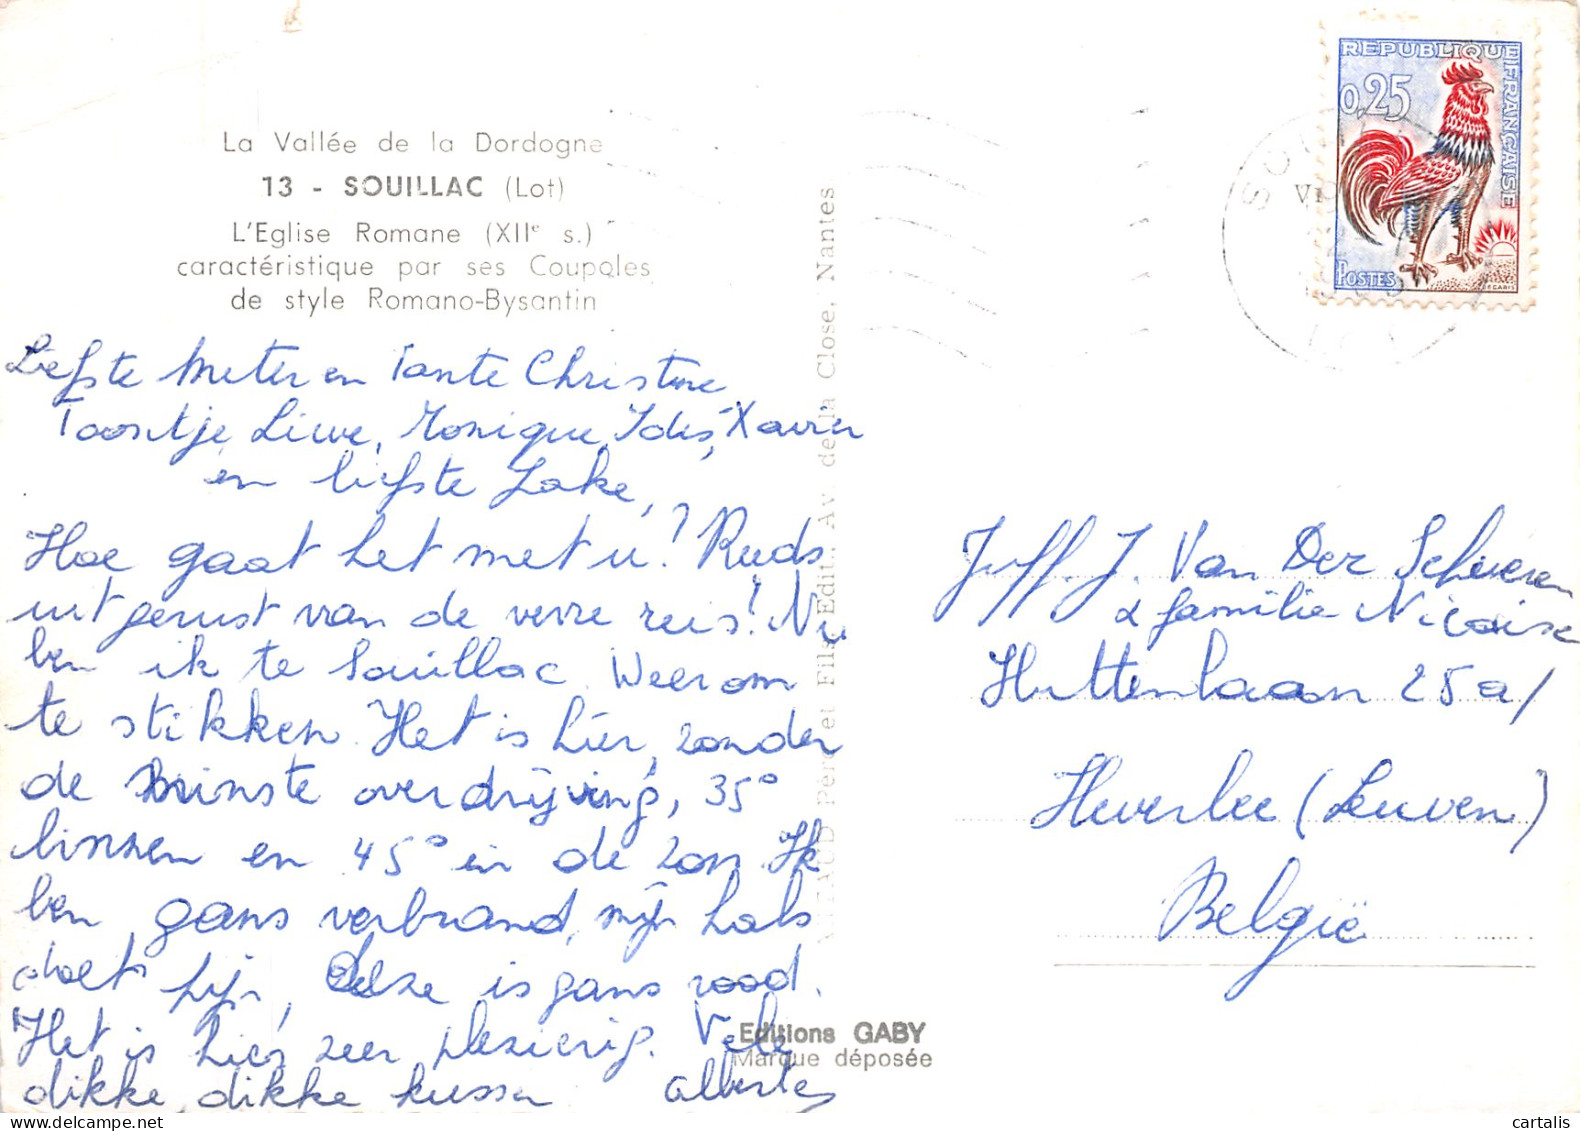 La Vallée de la Dordogne
13 - SOUILLAC (Lot)
L'Eglise Romane (XIIe s.)
caractéristique par ses Coupoles
de style Romano-Bysantin
Liefste Meter en Tante Christine
Toontje, Lieve, Monique, Ides, Xavier
en liefste Loke,
Hoe gaat het met u? Reeds
uitgerust van de verre reis! Nu
ben ik te Souillac. Weerom
te stikken. Het is hier, zonder
de minste overdrijving, 35°
binnen en 45° in de zon. Ik
ben gans verbrand, mijn hals
doet pijn, deze is gans rood.
Het is hier zeer plezierig. Vele
dikke, dikke kussen Alberte
Péré et Fils, Edit., Av. de la Close, Nantes
Editions GABY
Marque déposée
REPUBLIQUE FRANÇAISE
0,25
POSTES
DECARIS
Juff. J. Van Der Schueren
& familie Nicaise
Huttenlaan 25a/
Heverlee (Leuven)
België
cartalis